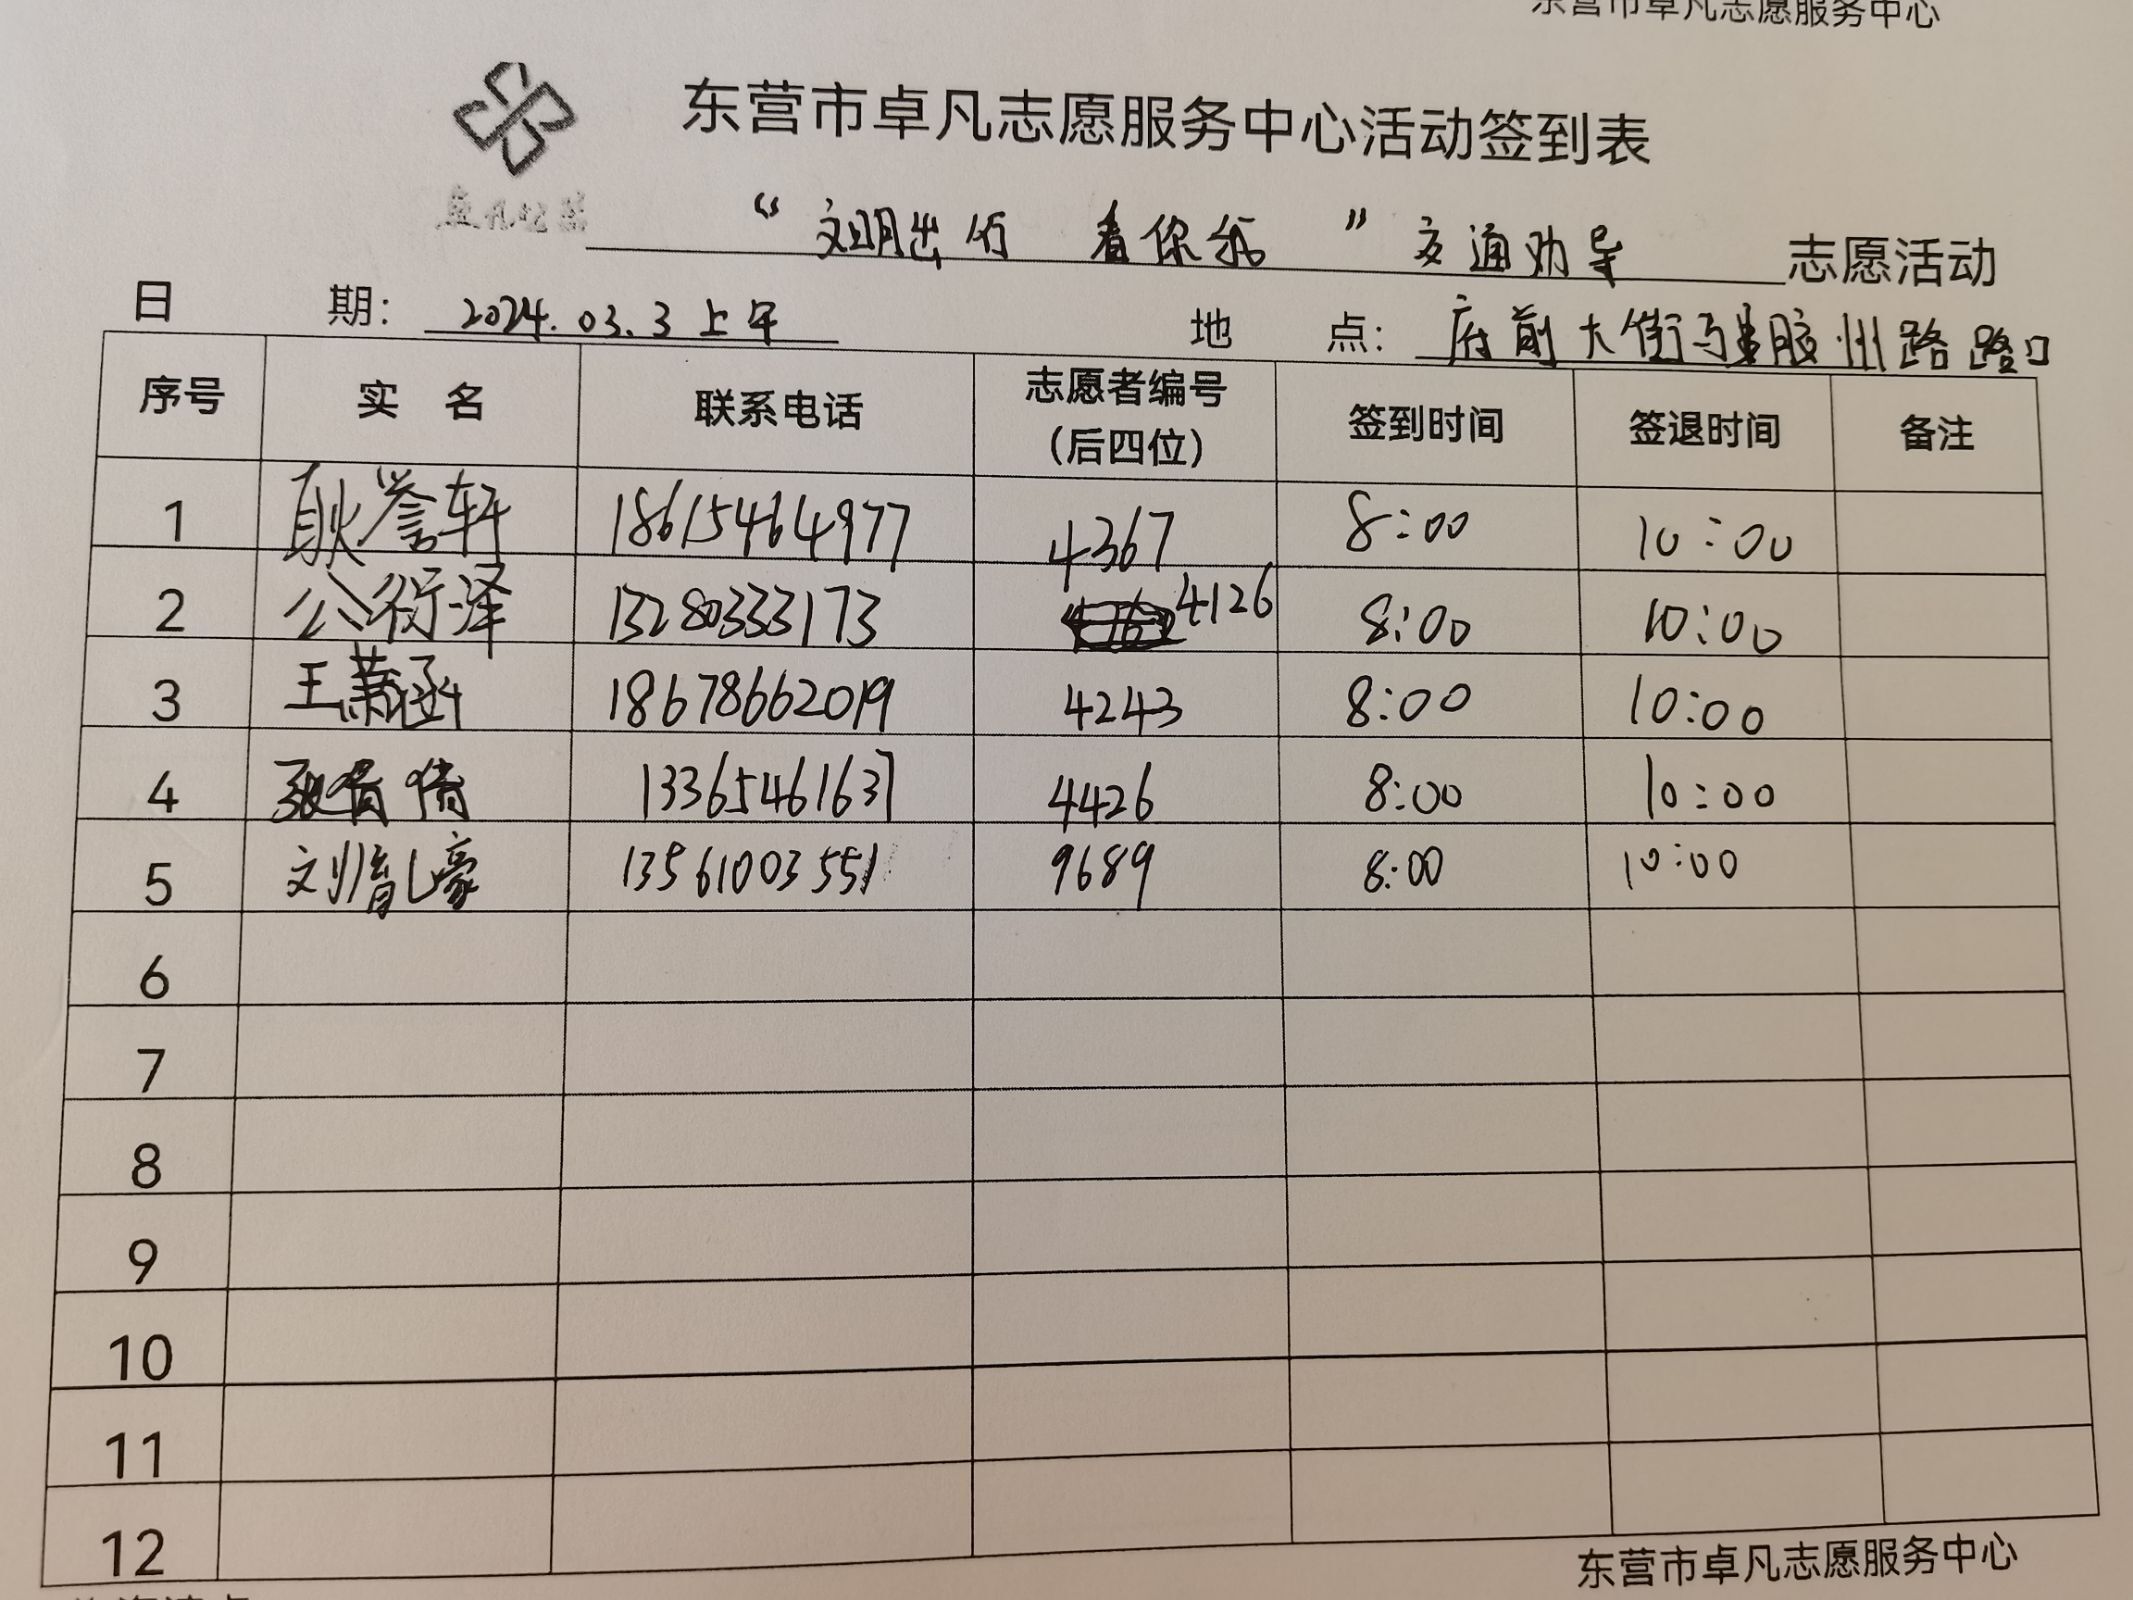 东营市卓凡志愿服务中心
东营市卓凡志愿服务中心活动签到表
“文明出行 看你我”交通劝导 志愿活动
日 期: 2024.03.3上午 地 点: 府前大街与胶州路路口
序号 实 名 联系电话 志愿者编号(后四位) 签到时间 签退时间 备注
1 耿誉轩 18615464977 4367 8:00 10:00
2 公衍泽 13280333173 4126 8:00 10:00
3 王萧涵 18678662019 4243 8:00 10:00
4 13365461637 4426 8:00 10:00
5 刘 豪 13561003551 9689 8:00 10:00
6
7
8
9
10
11
12
东营市卓凡志愿服务中心